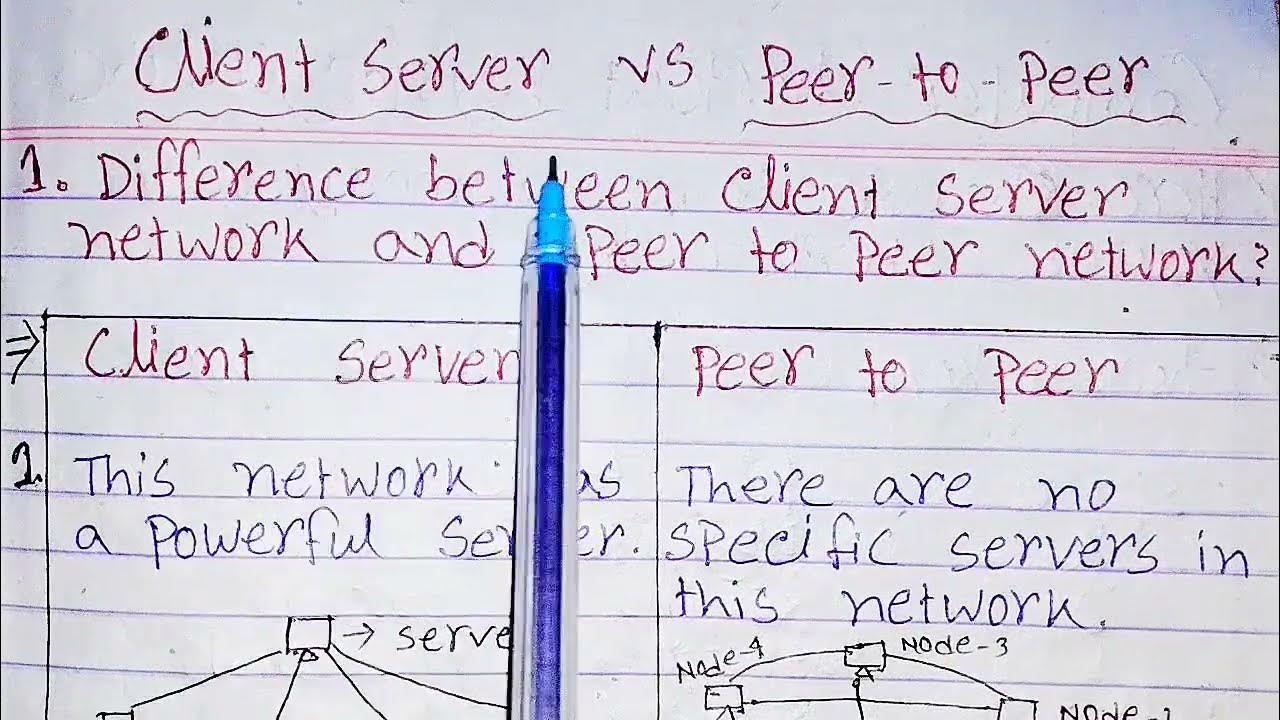 Client Server vs Peer-to-Peer
1. Difference between Client Server
network and Peer to Peer network?
⇒ Client Server
Peer to Peer
1. This network has
a powerful Server.
There are no
specific servers in
this network.
→ server
Node-4
Node-3